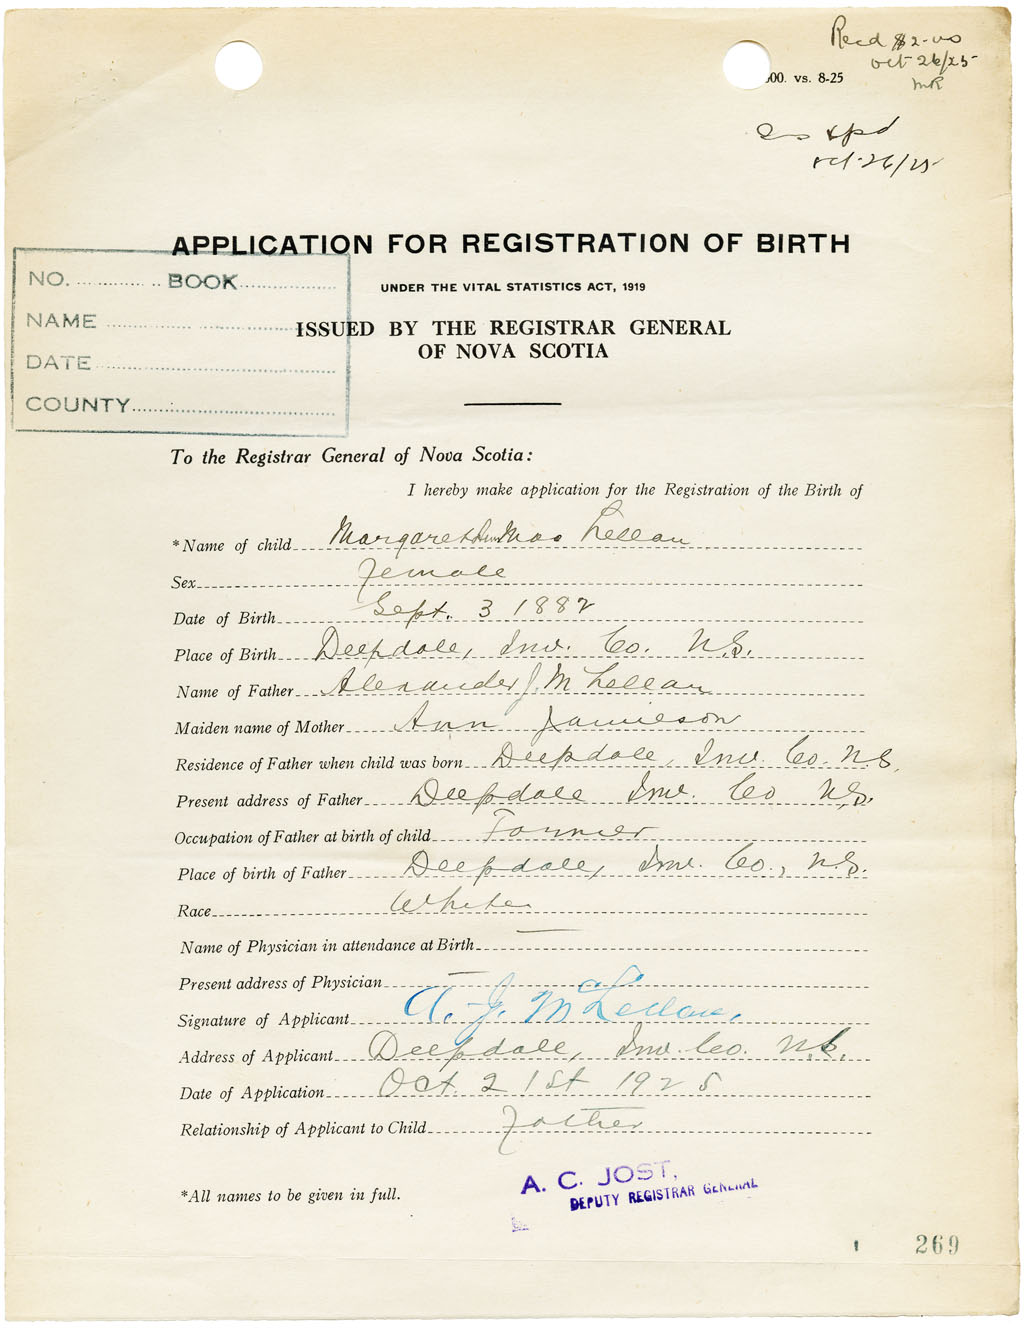 Recd $2.00
Oct 26/25
MR
00. vs. 8-25
Oct 26/25
APPLICATION FOR REGISTRATION OF BIRTH
UNDER THE VITAL STATISTICS ACT, 1919
ISSUED BY THE REGISTRAR GENERAL
OF NOVA SCOTIA
NO. BOOK
NAME
DATE
COUNTY
To the Registrar General of Nova Scotia:
I hereby make application for the Registration of the Birth of
*Name of child Margaret Ann Mac Lellan
Sex Female
Date of Birth Sept. 3 1882
Place of Birth Deepdale, Inv. Co. N.S.
Name of Father Alexander J. McLellan
Maiden name of Mother Ann Jamieson
Residence of Father when child was born Deepdale, Inv. Co. N.S.
Present address of Father Deepdale Inv. Co N.S.
Occupation of Father at birth of child Farmer
Place of birth of Father Deepdale, Inv. Co., N.S.
Race White
Name of Physician in attendance at Birth —
Present address of Physician —
Signature of Applicant A. J. McLellan.
Address of Applicant Deepdale, Inv. Co. N.S.
Date of Application Oct. 21st 1925
Relationship of Applicant to Child Father
*All names to be given in full.
A. C. JOST,
DEPUTY REGISTRAR GENERAL
269